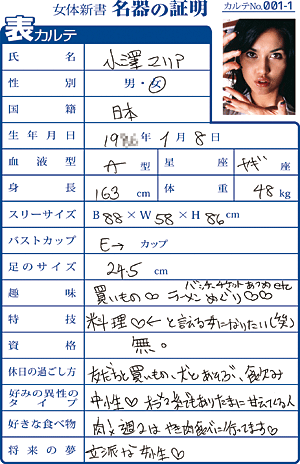 女体新書 名器の証明
カルテNo.001-1
表カルテ
氏 名 小澤マリア
性 別 男・女
国 籍 日本
生年月日 19 年 1月 8日
血液型 A型 星座 ヤギ座
身長 163cm 体重 48kg
スリーサイズ B 88 × W 58 × H 86 cm
バストカップ E→ カップ
足のサイズ 24.5 cm
趣 味 買いもの♡♡ ラーメンめぐり♡♡ etc
特 技 料理♡← と言える女になりたい(笑)
資 格 無。
休日の過ごし方 友だちと買いもの、犬とあそぶ、飲み
好みの異性のタイプ
好きな食べ物 肉 週2は やき肉食べに行ってます♡
将来の夢 立派な